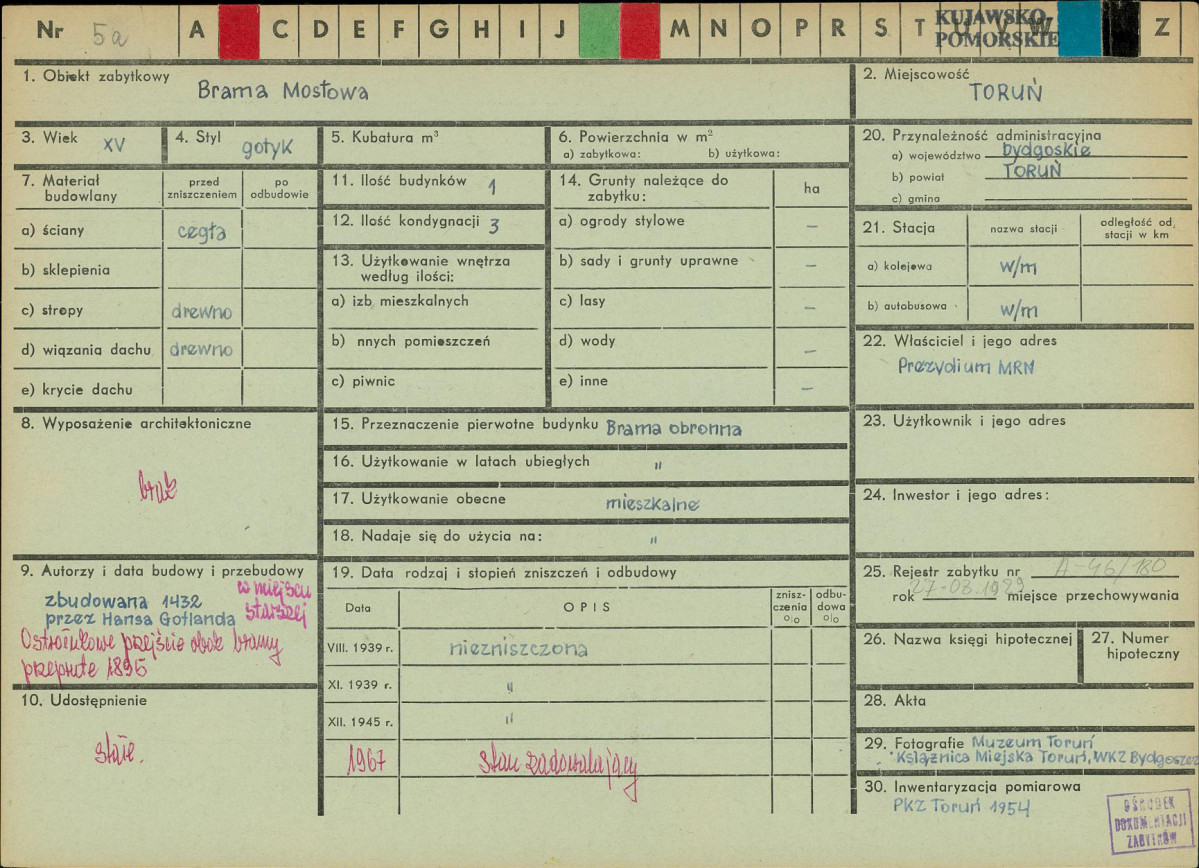 Nr 5a A C D E F G H I J M N O P R S T U V W Z
KUJAWSKO-
POMORSKIE
1. Obiekt zabytkowy
Brama Mostowa
2. Miejscowość
TORUŃ
3. Wiek XV
4. Styl gotyk
5. Kubatura m³
6. Powierzchnia w m²
a) zabytkowa: b) użytkowa:
20. Przynależność administracyjna
a) województwo bydgoskie
b) powiat TORUŃ
c) gmina
7. Materiał budowlany
przed zniszczeniem
po odbudowie
a) ściany cegła
b) sklepienia
c) stropy drewno
d) wiązania dachu drewno
e) krycie dachu
11. Ilość budynków 1
12. Ilość kondygnacji 3
13. Użytkowanie wnętrza
według ilości:
a) izb mieszkalnych
b) nnych pomieszczeń
c) piwnic
14. Grunty należące do
zabytku:
ha
a) ogrody stylowe –
b) sady i grunty uprawne –
c) lasy –
d) wody –
e) inne –
21. Stacja
nazwa stacji
odległość od
stacji w km
a) kolejowa w/m
b) autobusowa w/m
22. Właściciel i jego adres
Prezydium MRN
8. Wyposażenie architektoniczne
brak
15. Przeznaczenie pierwotne budynku Brama obronna
16. Użytkowanie w latach ubiegłych "
17. Użytkowanie obecne mieszkalne
18. Nadaje się do użycia na: "
23. Użytkownik i jego adres
24. Inwestor i jego adres:
9. Autorzy i data budowy i przebudowy
zbudowana 1432 w miejscu
przez Hansa Gotlanda starszej
Ostrołukowe przejście obok bramy
przeprute 1895
19. Data rodzaj i stopień zniszczeń i odbudowy
Data
OPIS
znisz-
czenia
o|o
odbu-
dowa
o|o
VIII. 1939 r. niezniszczona
XI. 1939 r. "
XII. 1945 r. "
1967 stan zadowalający
25. Rejestr zabytku nr A-46/180
rok 27-03.1929 miejsce przechowywania
26. Nazwa księgi hipotecznej
27. Numer
hipoteczny
10. Udostępnienie
stałe.
28. Akta
29. Fotografie Muzeum Toruń
Książnica Miejska Toruń, WKZ Bydgoszcz
30. Inwentaryzacja pomiarowa
PKZ Toruń 1954
OŚRODEK
DOKUMENTACJI
ZABYTKÓW